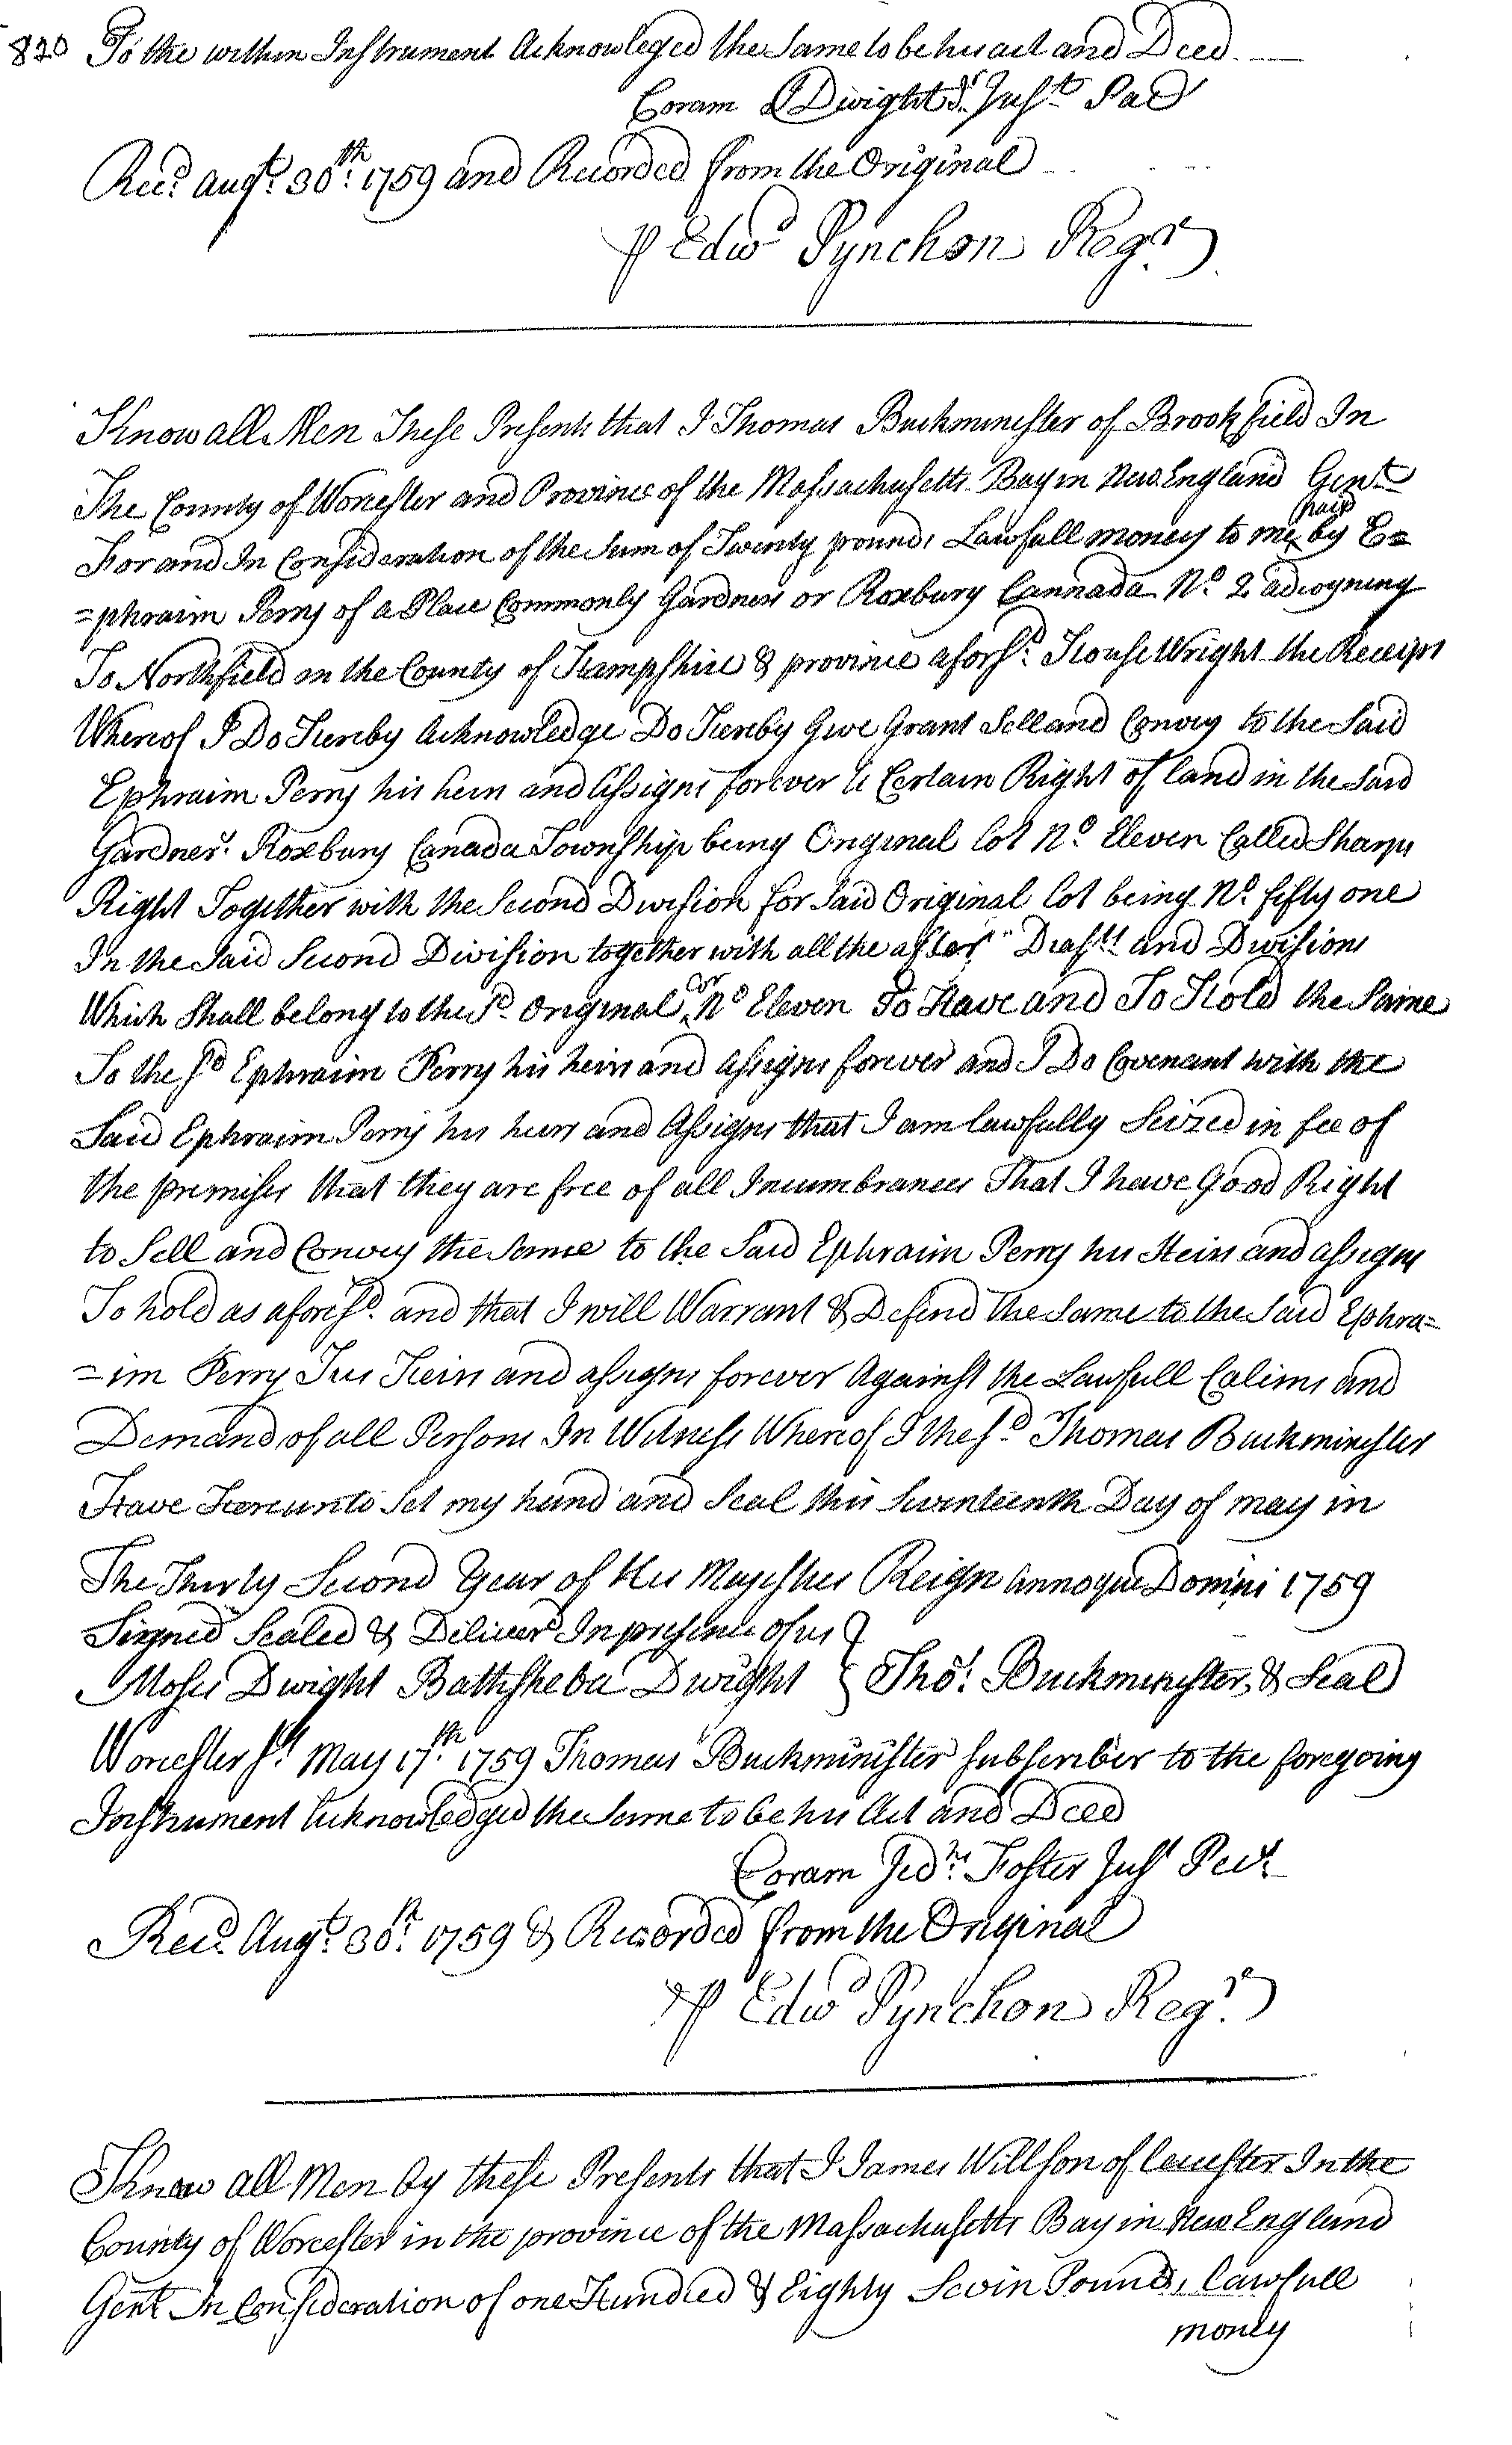 820 To the within Instrument Acknowleged the Same to be his act and Deed
Coram Dwight Just Pac
Recd Augt 30th 1759 and Recorded from the Original
P Edwd Pynchon Regr
Know all Men These Presents that I Thomas Buckminester of Brookfield In
The County of Worcester and Province of the Massachusetts Bay in New England Gent
For and In Consideration of the Sum of Twenty pounds Lawfull money to me paid by E=
=phraim Perry of a Place Commonly Gardners or Roxbury Cannada No 2 adioyning
To Northfield in the County of Hampshire & province aforsd House Wright the Receipt
Whereof I Do Hereby Acknowledge Do Hereby Give Grant Sell and Convey to the Said
Ephraim Perry his heirs and Assigns forever a Certain Right of Land in the Said
Gardners Roxbury Canada Township being Original Lot No Eleven Called Sharps
Right Together with the Second Division for Said Original Lot being No fifty one
In the Said Second Division together with all the after Drafts and Divisions
Which Shall belong to the Sd Original Lot No Eleven To Have and To Hold the Same
To the sd Ephraim Perry his heirs and Assigns forever and I Do Covenant with the
Said Ephraim Perry his heirs and Assigns that I am lawfully Seized in fee of
the premises that they are free of all Incumbrances That I have Good Right
to Sell and Convey the Same to the Said Ephraim Perry his Heirs and assigns
To hold as aforesd and that I will Warrant & Defend the Same to the Said Ephra=
=im Perry His Heirs and assigns forever Against the Lawfull Calims and
Demand of all Persons In Witness Whereof I the sd Thomas Buckminester
Have Hereunto Set my hand and Seal this Seventeenth Day of may in
The Thirty Second Year of His Majesties Reign Annoque Domini 1759
Signed Sealed & Deliverd In presence of us
Moses Dwight Bathsheba Dwight } Thos Buckminster & Seal
Worcester ss May 17th 1759 Thomas Buckminister Subscriber to the foregoing
Instrument Acknowledged the Same to be his Act and Deed
Coram Jedh Foster Just Peace
Recd Augt 30th 1759 & Recorded from the Original
P Edwd Pynchon Regr
Know all Men by these Presents that I James Willson of Leicester In the
County of Worcester in the province of the Massachusetts Bay in New England
Gent In Consideration of one Hundred & Eighty Sevin Pounds Lawfull
money